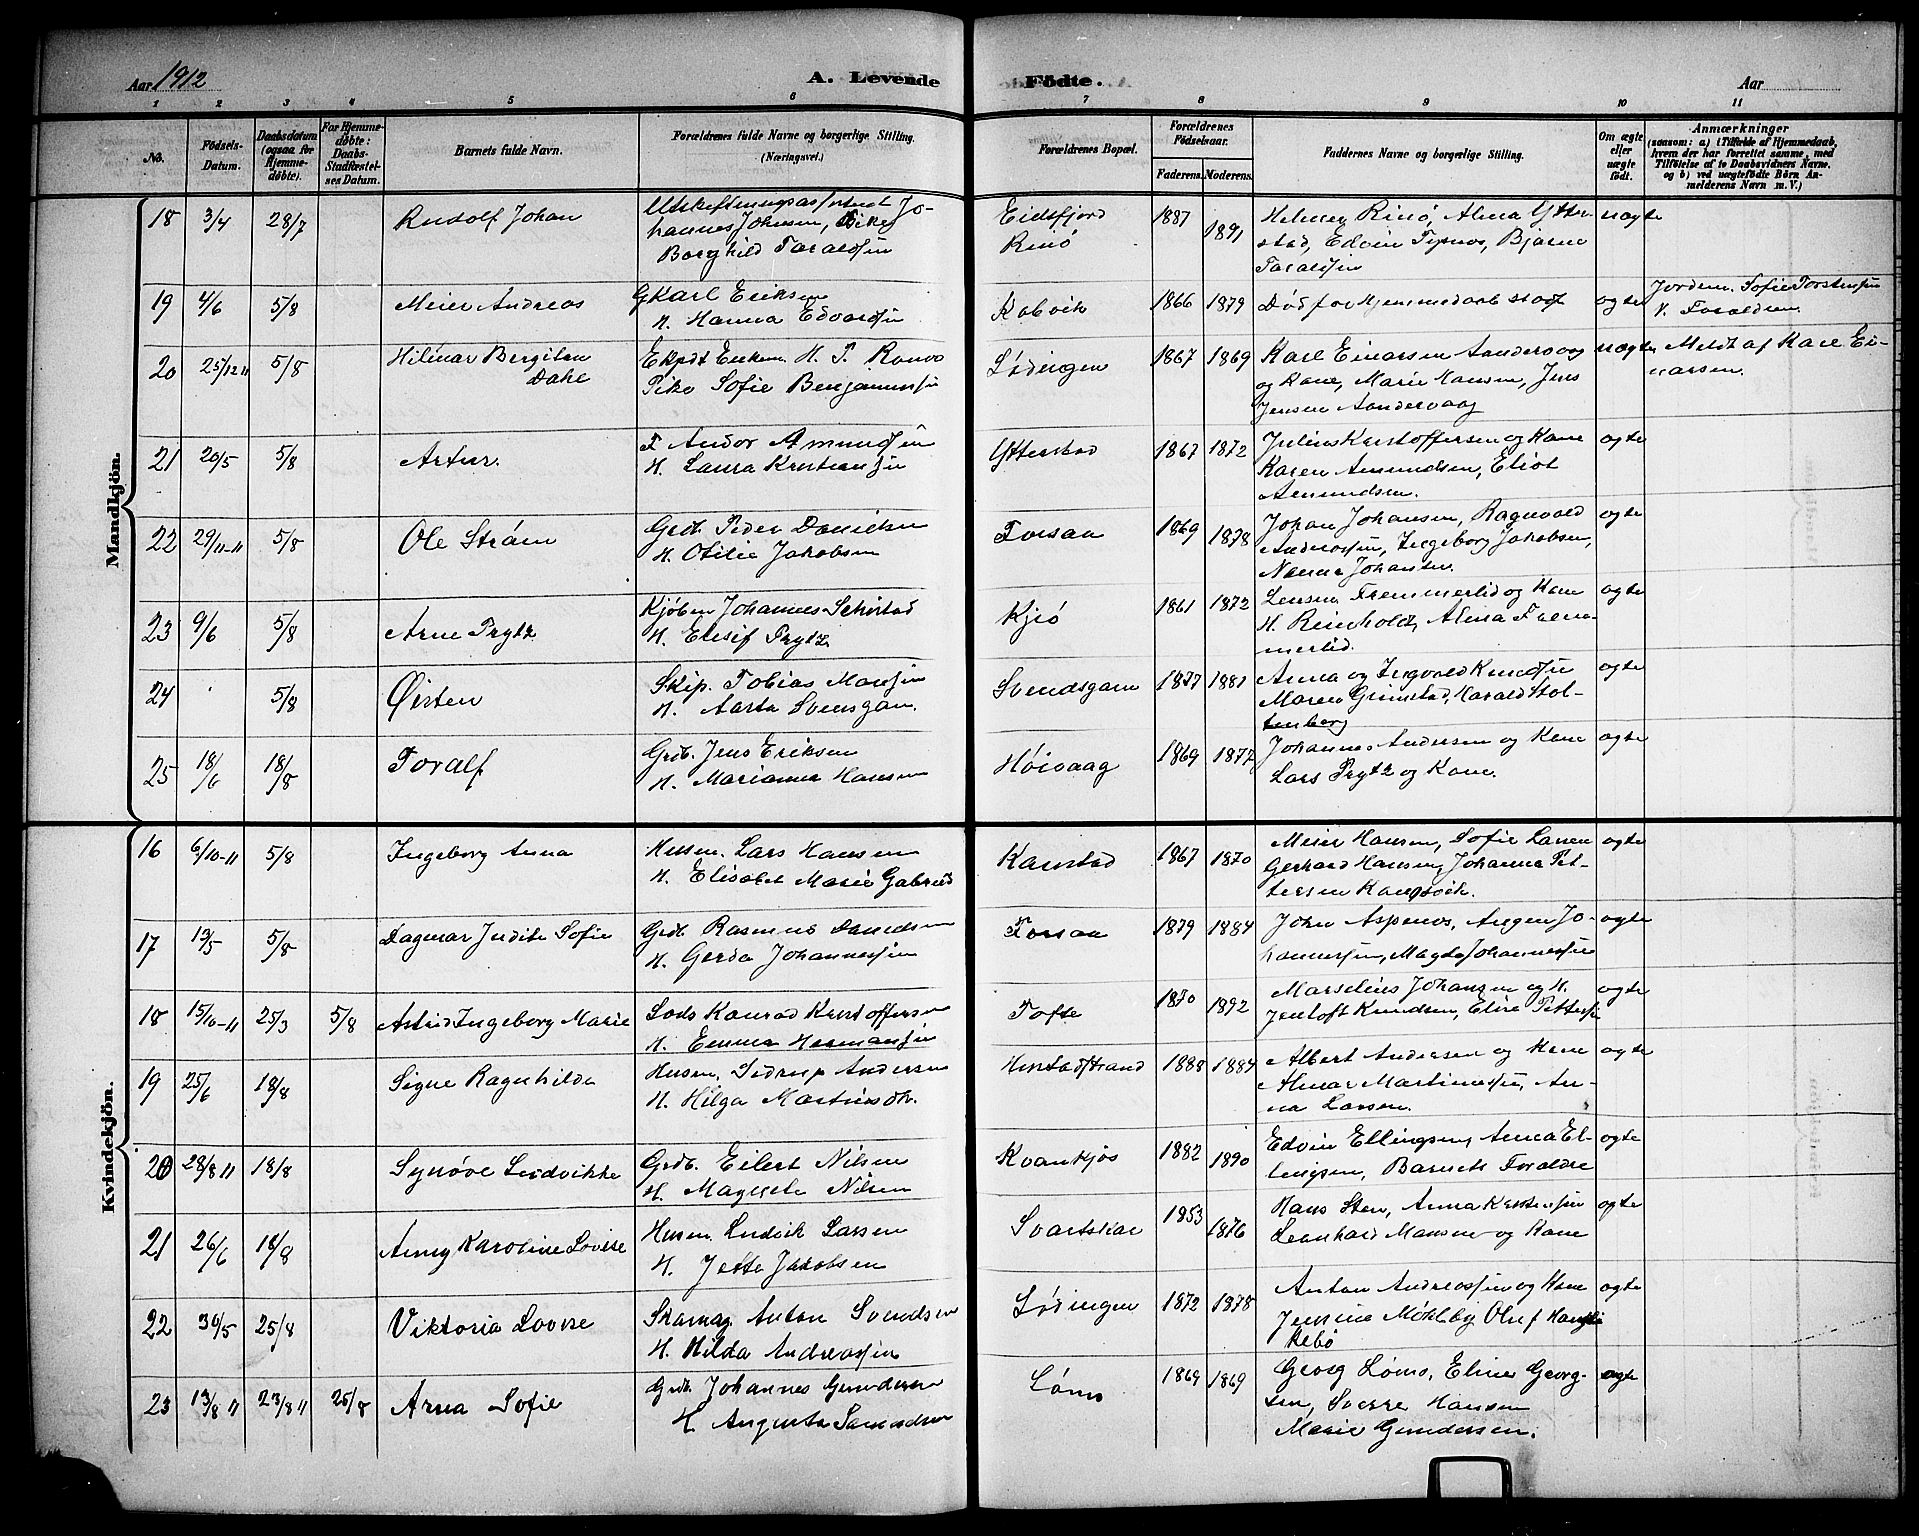 Aar 1912
A. Levende Födte.
Aar
1 2 3 4 5 6 7 8 9 10 11
No.
Födsels-Datum.
Daabsdatum (ogsaa for Hjemmedöbte).
For Hjemmedöbte: Daabs-Stadfæstelses Datum.
Barnets fulde Navn.
Forældrenes fulde Navne og borgerlige Stilling. (Næringsvei.)
Forældrenes Bopæl.
Forældrenes Födselsaar.
Faderens. Moderens.
Faddernes Navne og borgerlige Stilling.
Om ægte eller uægte födt.
Anmærkninger
(saasom: a) i Tilfælde af Hjemmedaab,
hvem der har forrettet samme, med
Tilföielse af to Daabsvidners Navne,
og b) ved uægtefödte Börn An-
melderens Navn m. V.)
Mandkjön.
18 3/4 28/7 Rudolf Johan
Johannes Johnsen, Pike
Borghild Taraldsen
Eidsfjord
Rinø
1887 1891
Helmer Rinø, Alma Ytter-
stad, Edvin, Bjarne
Taraldsen
uægte
19 4/6 5/8 Meier Andreas
G Karl Eriksen
H. Hanna Edvardsen
Kobvik
1866 1879
Død før Hjemmedaab stadf
ægte
Jordem. Sofie Torstensen
V. Foraldren
20 25/12 11 5/8 Hilmar Bergiton
Dahl
Ekpdt Eriksen H. P.
Pike Sofie Benjaminsen
Lødingen
1867 1869
Karl Einarsen Sandervaag
og Kone, Marie Hansen, Jens
Jensen Sandervaag
uægte
Meldt af Karl Ei-
narsen.
21 20/5 5/8 Artur.
F. Andor Amundsen
H. Laura Kristiansen
Ytterstad
1867 1872
Julius Kristoffersen og Kone
Karen Amundsen, Eliot
Amundsen.
ægte
22 29/11-11 5/8 Ole Strøm
Grdb. Peder Danielsen
H. Otilie Jakobsen
Forsaa
1869 1878
Johan Johansen, Ragnvald
Andreassen, Ingeborg Jakobsen,
Nanna Johansen.
ægte
23 9/6 5/8 Arne Prytz
Kjøbm Johannes Schistad
H. Elisif Prytz
Kjeø
1861 1872
Lensm Fremmerlid og Kone
H. Reinholdt, Alma Frem-
merlid.
ægte
24 5/8 Øisten
Skip. Tobias Mariesen
H. Aarta Svensgam.
Svendsgam
1877 1881
Anna og Ingvald Knudsen
Maren Grimstad, Harald Stol-
tenberg
ægte
25 18/6 18/8 Toralf
Grdb. Jens Eriksen
H. Marianna Hansen
Høivaag
1869 1877
Johannes Andersen og Kone
Lars Prytz og Kone.
ægte
Kvindekjön.
16 6/10-11 5/8 Ingeborg Anna
Husm. Lars Hansen
H. Elisabet Marie Gabriels
Kanstad
1867 1870
Meier Hansen, Sofie Larsen
Gerhard Hansen, Johanna Pet-
tersen Kanstadvik.
ægte
17 19/5 5/8 Dagmar Judite Sofie
Grdb. Rasmus Danielsen
H. Gerda Johannessen
Forsaa
1879 1884
John Aspenes, Augen Jo-
hannessen, Magda Johannessen
ægte
18 15/10-11 25/3 5/8 Astrid Ingeborg Marie
Lods Konrad Kristoffersen
H. Emma Hermansen
Tofte
1870 1892
Marselius Johansen og H.
Jentoft Knudsen, Eline Pettersen
ægte
19 25/6 18/8 Signe Ragnhilda
Husm. Sedrup Andersen
H. Hilga Martinsdtr.
Henstadstrand
1888 1884
Albert Andersen og Kone
Almar Martinussen, An-
na Larsen.
ægte
20 28/8 11 18/8 Synøve Ludvikke
Grdb. Eilert Nilsen
H. Magreta Nilsen
Kvankjøs
1882 1890
Edvin Ellingsen, Anna El-
lingsen, Barnets Foraldre
ægte
21 26/6 18/8 Anny Karoline Lovise
Husm. Ludvik Larsen
H. Jette Jakobsen
Svartskar
1853 1876
Hans Sten, Anna Kristensen
Leonhard Hansen og Kone
ægte
22 30/5 25/8 Viktoria Lovise
Skomag Anton Svendsen
H. Hilda Andreassen
Lødingen
1872 1878
Anton Andreassen og Kone
Jensine Møhlby Oluf Hans
Rebø
ægte
23 13/8 11 23/8 11 25/8 Anna Sofie
Grdb. Johannes Gundersen
H. Augusta Samuelsen
Lømo
1869 1869
Georg Lømo, Eline Georg-
sen, Sverre Hansen
Marie Gundersen.
ægte